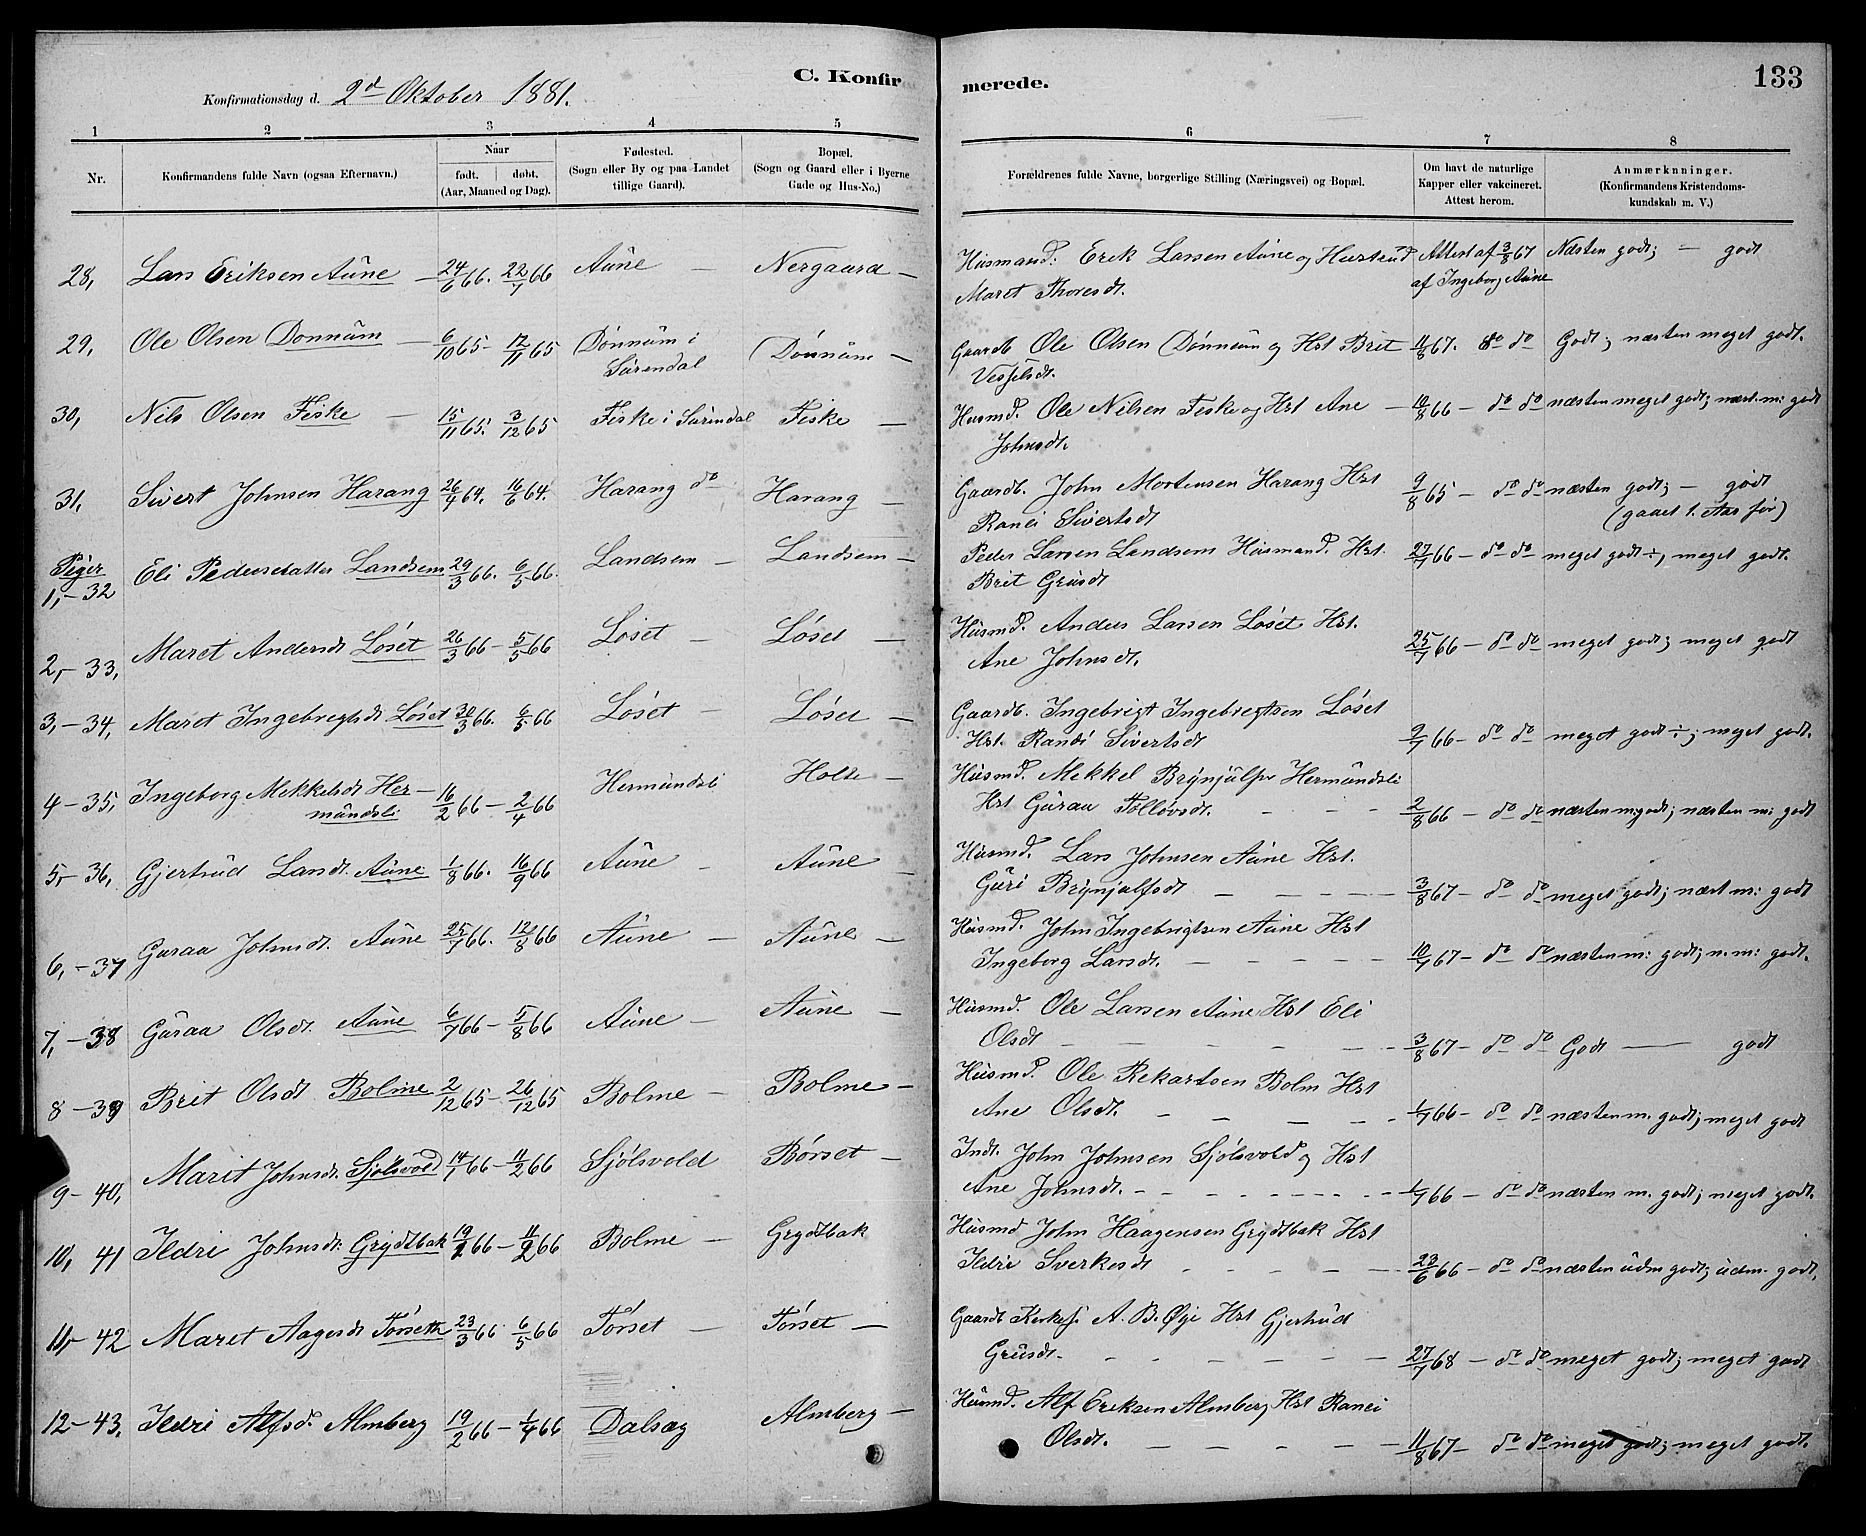 C. Konfirmerede. 133
Konfirmationsdag d. 2d Oktober 1881.
1 2 3 4 5 6 7 8
Nr. Konfirmandens fulde Navn (ogsaa Efternavn.) Naar født. døbt. (Aar, Maaned og Dag). Fødested. (Sogn eller By og paa Landet tillige Gaard). Bopæl. (Sogn og Gaard eller i Byerne Gade og Hus-No.) Forældrenes fulde Navne, borgerlige Stilling (Næringsvei) og Bopæl. Om havt de naturlige Kapper eller vakcineret. Attest herom. Anmærknninger. (Konfirmandens Kristendoms-kundskab m. V.)
28, Lars Eriksen Aüne — 24/6 66. 22/7 66 Aüne — Nergaard — Hüsmand. Erik Larsen Aüne og Hüstrüd Attest af 3/8 67 Næsten godt; — godt
Maret Thoresdt. af Ingeborg Aüne
29, Ole Olsen Donnüm — 6/10 65 - 12/11 65 Dónnüm i Dónnüm — Gaardb Ole Olsen Dónnüm og Hst Brit 11/8 67. do do Godt; næsten meget godt.
Sürendal Vesselsdt.
30, Nils Olsen Fiske — 15/11 65. 3/12 65 Fiske i Sürindal Fiske — Husmd. Ole Nilsen Fiske og Hst Ane — 10/8 66 — do do næsten meget godt; næst. m: godt
Johnsdt.
31. Sivert Johnsen Harang 26/4 64. 16/6 64. Harang do Harang — Gaardb. John Mortensen Harang Hst 9/8 65 — do do næsten godt; — godt
Ranei Sivertsdt (gaaet 1. Aar før)
Piger
1,-32 Eli Pedersdatter Landsem 29/3 66. 6/5 66. Landsem — Landsem — Peder Larsen Landsem Hüsmand. Hst. 27/7 66 — do do meget godt ÷; meget godt.
Brit Grüsdt
2,- 33, Maret Andersdt Lóset 26/3 66 - 5/5 66 Lóset — Lóset — Hüsmd. Anders Larsen Lóset Hst. 25/7 66 — do do meget godt; meget godt
Ane Johnsdt.
3,- 34, Maret Ingebregtsdt Lóset 30/3 66. 6/5 66 Lóset — Lóset — Gaardb. Ingebrigt Ingebregtsen Lóset
Hst. Randi Sivertsdt 2/7 66 - do do meget godt ÷; meget godt.
4 - 35, Ingeborg Mekkelsdt Her- 16/2 66 - 2/4 66 Hermündsli Holte — Hüsmd. Mekkel Brynjülfsn Hermündsli
mündsli Hst Güraa Tolløvsdt. 2/8 66 — do do næsten m godt; næsten m: godt
5,- 36, Gjertrüd Larsdt. Aüne 1/8 66. 16/9 66 Aüne — Aüne — Hüsmd. Lars Johnsen Aüne Hst.
Güri Brynjulfsdt 3/8 67 — do do meget godt; næst m: godt
6,- 37 Guraa Johnsdt. Aüne 25/7 66. 12/8 66 Aüne — Aüne — Hüsmd. John Ingebrigtsen Aüne Hst
Ingeborg Larsdt. 10/7 67 - do do næsten m: godt; n. m: godt.
7, - 38 Güraa Olsdt. Aüne 6/7 66 - 5/8 66 Aüne — Aüne — Hüsmd. Ole Larsen Aüne Hst Eli
Olsdt 3/8 67 - do do Godt — godt
8 - 39 Brit Olsdt Bolme 2/12 65 - 26/12 65 Bolme — Bolme — Hüsmd. Ole Rekartsen Bolm Hst
Ane Olsdt. 1/7 66 - do do næsten m. godt; meget godt
9 - 40, Marit Johnsdt. Sjólsvold 14/1 66 - 11/2 66 Sjólsvold Børset — Indt. John Johnsen Sjólsvold og Hst
Ane Johnsdt. 1/7 66 — do do næsten m. godt; meget godt.
10, 41 Ildri Johnsdt: Grydtbak 19/1 66 - 11/2 66 Bolme — Grydtbak Hüsmd John Haagensen Grydtbak Hst
Ildri Sverkesdt 23/6 66 - do do næsten üdm godt; üdm. godt.
11,- 42 Maret Aagesdt Tórseth 23/3 66 6/5 66 Tórset — Tórset — Gaardb Kirkes. A. B. Øye Hst Gjertrüd
Grüsdt. 27/7 68 - do do meget godt; meget godt
12 - 43. Ildri Alfsd. Almberg 19/2 66 - 1/4 66 Dalsæg Almberg — Hüsmd. Alf Eriksen Almberg Hst Ranei
Olsdt. 11/8 67 - do do meget godt; meget godt.